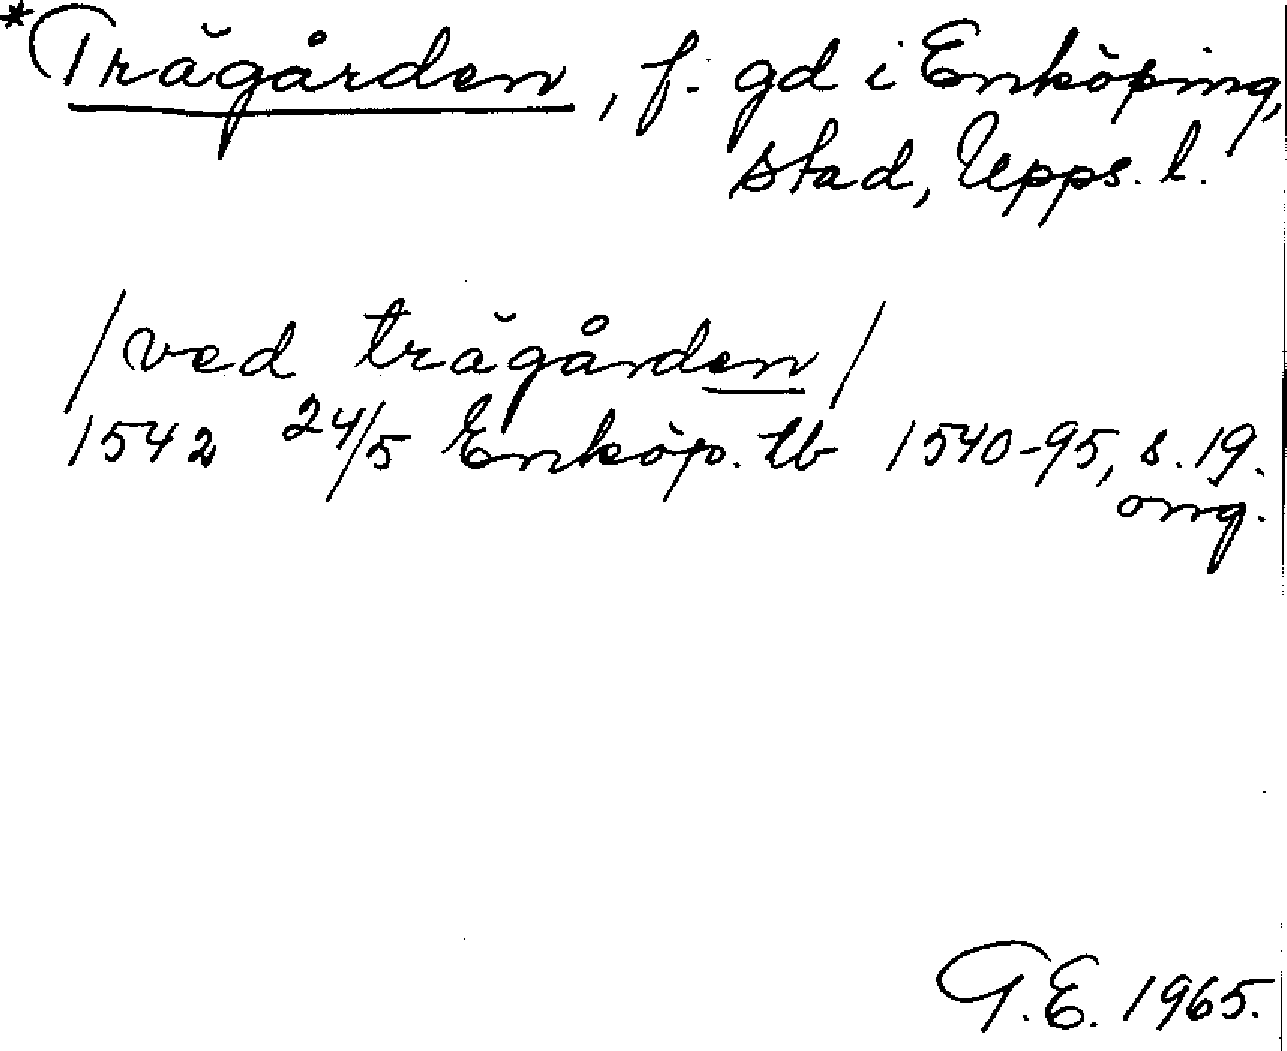 *Trägården, f. gd i Enköping,
stad, Upps. l.
/ved trägården/
1542 24/5 Enköp. tb 1540-95, s. 19.
orig.
G.E. 1965.